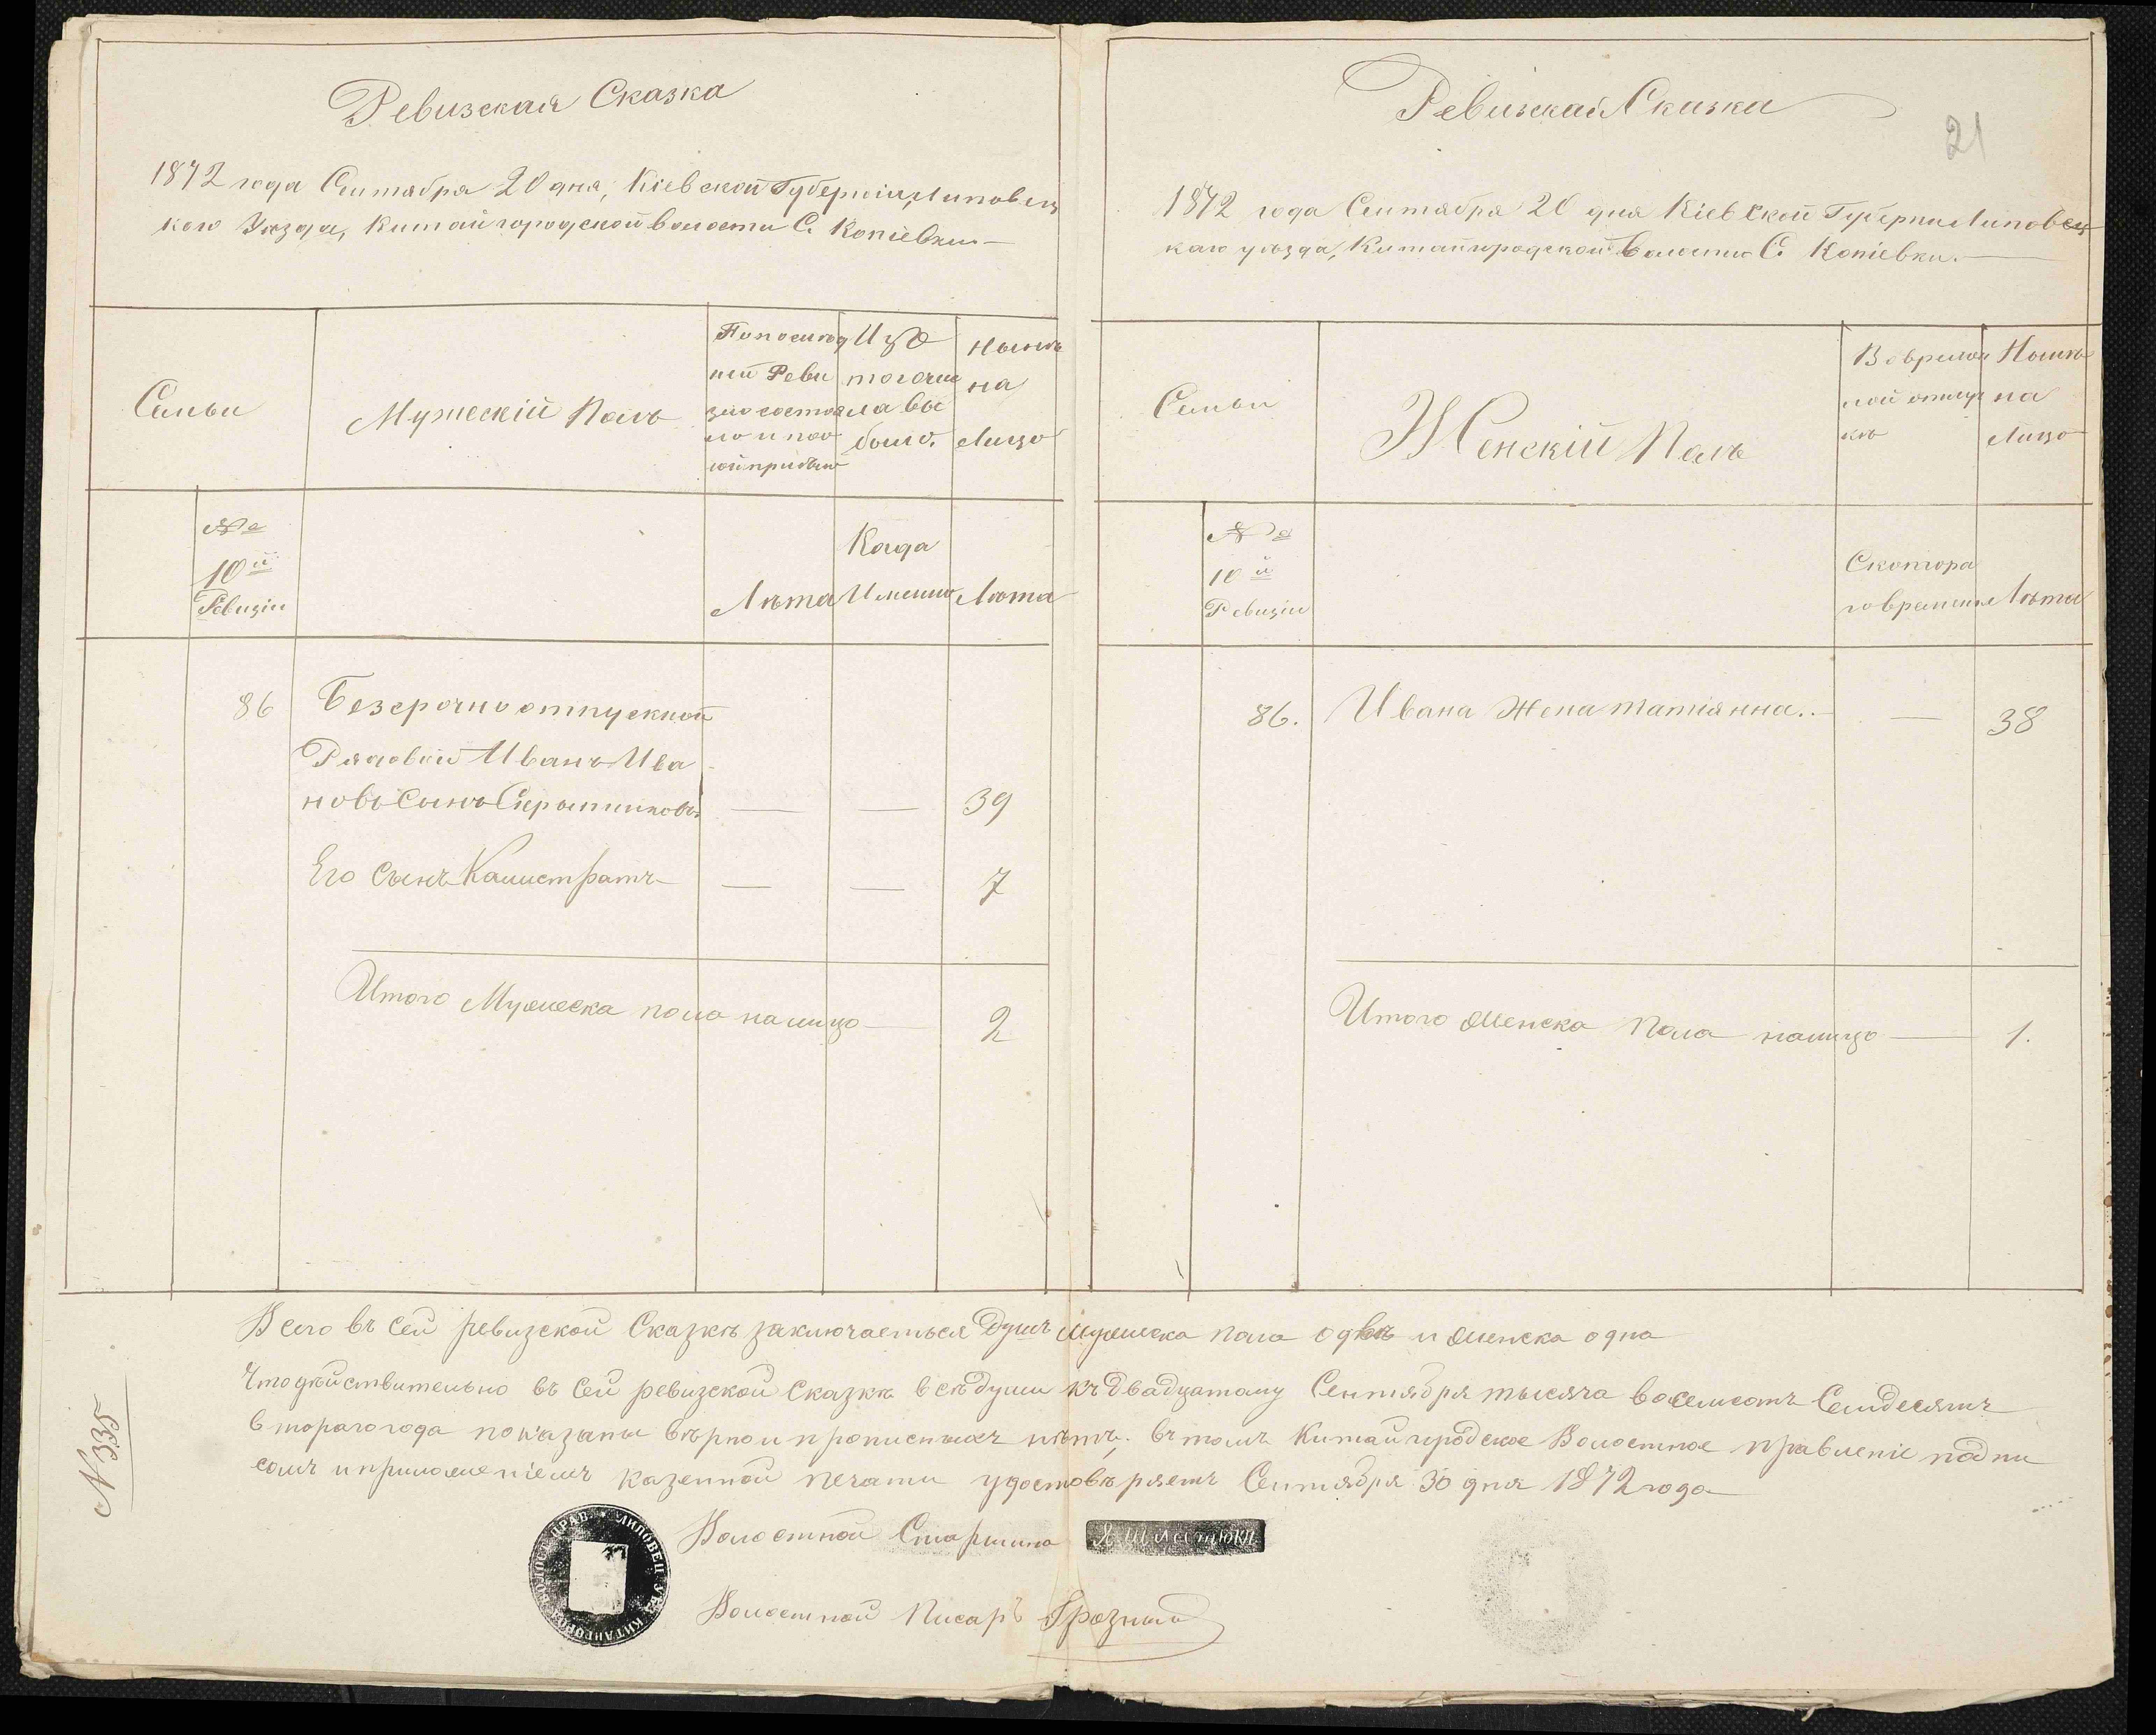 Ревизская Сказка
1872 года Сентября 20 дня, Кіевской Губерніи, Липовец
кого Уезда, Китайгородской волости С. Копіевки
Семьи
Мужескій Полъ
По послѣд
ней Реви
зіи состоя
ло и пос
лѣ прибыло
Изъ
того чис
ла вы
было.
Нынѣ
на
Лицо
№
10й
Ревизіи
Лѣта
Когда
Именно
Лѣта
86 Безсрочноотпускной
Рядовой Иванъ Ива
новъ Сынъ — — 39
Его Сынъ Калистратъ — — 7
Итого Мужеска пола налицо — 2
Ревизская Сказка
21
1872 года Сентября 20 дня Кіевской Губерніи Липовец
каго уѣзда, Китайгородской Волости С. Копіевки.
Семьи
Женскій Полъ
Во времен
ной отлуч
кѣ
Нынѣ
на
Лицо
№
10й
Ревизіи
Скотора
го времени
Лѣта
86. Ивана Жена Татіянна.. — 38
Итого Женска Пола налицо — 1.
Всего въ сей ревизской Сказкѣ заключаеться Душъ мужеска пола и женска одна
Что дѣйствительно въ сей ревизской Сказкѣ всѣ души къ Двадцатому Сентября тысяча восемсотъ Семдесятъ
втораго года показаны вѣрно и прописныхъ нѣтъ; въ томъ Китайгородское Волостное правленіе подпи
сомъ и приложеніемъ казенной печати удостовѣряетъ Сентября 30 дня 1872 года
N 335
Волостной Старшина
Волостной Писаръ Грозный
ЛИПОВЕЦ. У. КИТАЙГОРОД. ВОЛОСТ. ПРАВ.